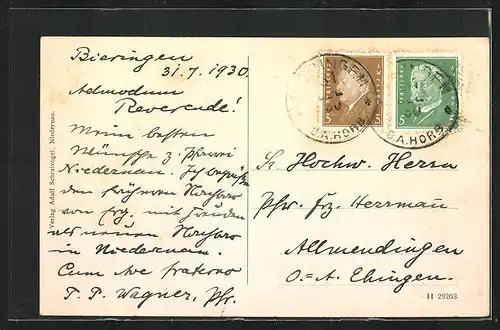 Bieringen
31.7.1930.
Admodum
Reverende!
Meine besten
Wünsche z. Pfarrei
Niedernau. Ich begrüße
den früheren Nachbar
von Erg. mit Freuden
als neuen Nachbar
in Niedernau.
Cum Ave fraterno
T. P. Wagner, Pfr.
Verlag Adolf Schraivogel, Niedernau.
O.A.HORB
5 5
O.A.HORB
5
Sr. Hochw. Herrn
Pfr. Frz. Herrman
Allmendingen
O.=A. Ehingen.
H 29263